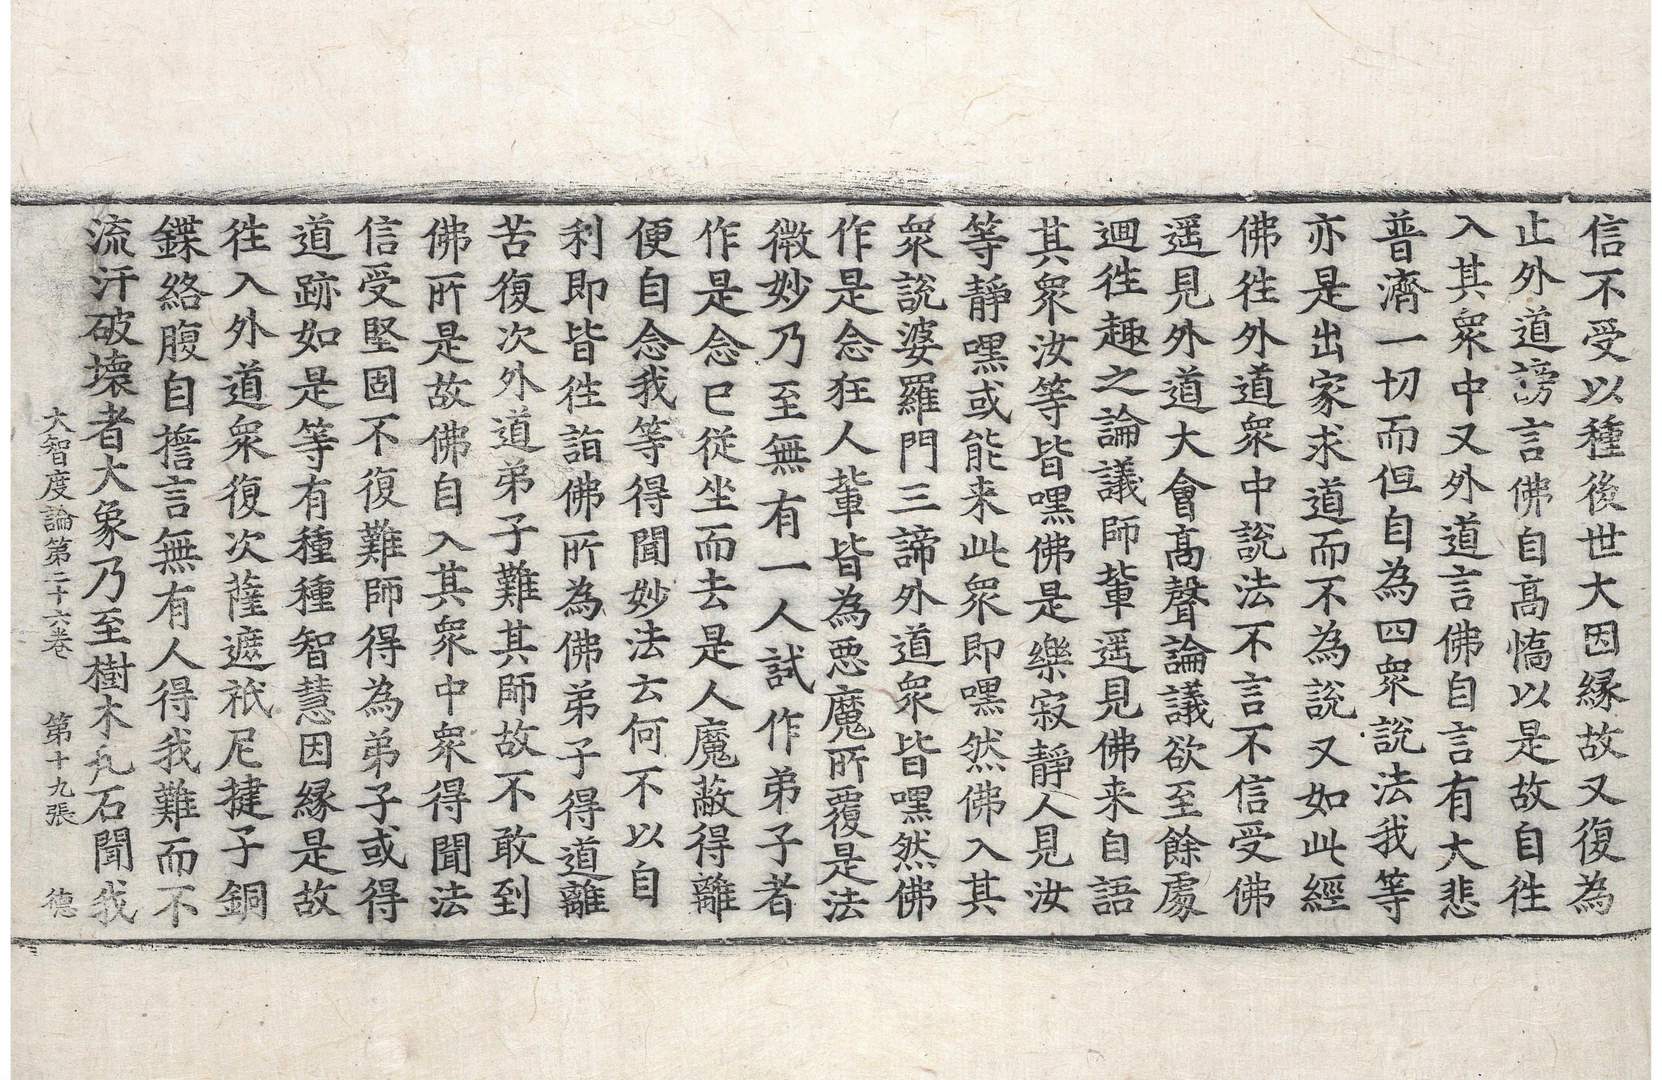 信不受以種後世大因縁故又復為
止外道謗言佛自髙憍以是故自徃
入其衆中又外道言佛自言有大悲
普濟一切而但自為四衆說法我等
亦是出家求道而不為說又如此經
佛徃外道衆中說法不言不信受佛
遥見外道大會髙聲論議欲至餘處
迴徃趣之論議師軰遥見佛来自語
其衆汝等皆嘿佛是樂寂靜人見汝
等靜嘿或能来此衆即嘿然佛入其
衆說婆羅門三諦外道衆皆嘿然佛
作是念狂人軰皆為惡魔所覆是法
微妙乃至無有一人試作弟子者
作是念已從坐而去是人魔蔽得離
便自念我等得聞妙法云何不以自
利即皆徃詣佛所為佛弟子得道離
苦復次外道弟子難其師故不敢到
佛所是故佛自入其衆中衆得聞法
信受堅固不復難師得為弟子或得
道跡如是等有種種智慧因縁是故
徃入外道衆復次薩遮祇尼揵子銅
鍱絡腹自擔言無有人得我難而不
流汗破壞者大象乃至樹木瓦石聞我
大智度論第二十六卷 第十九張 德